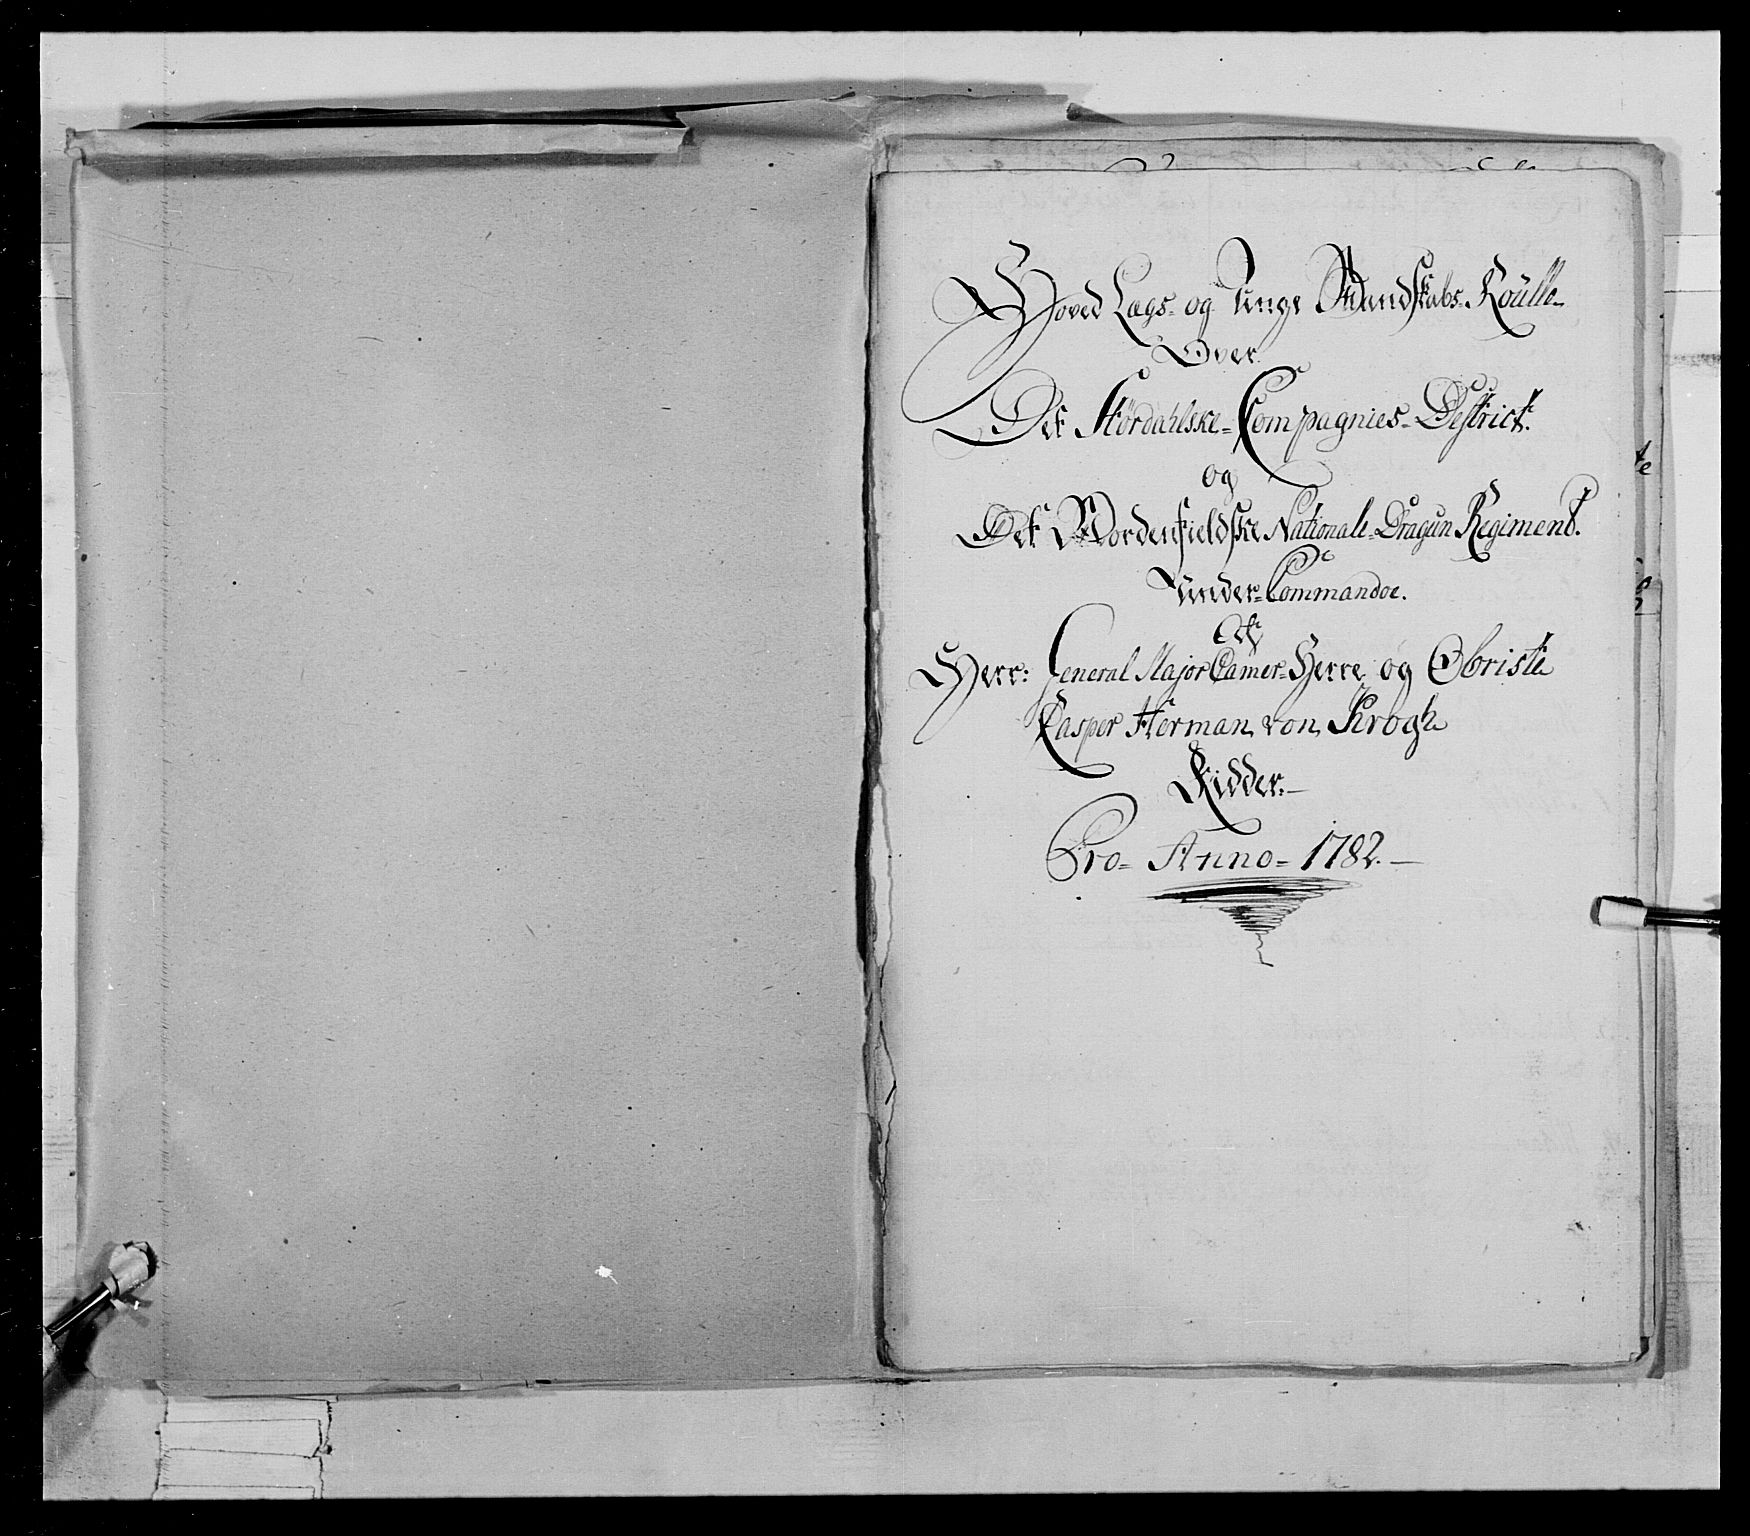 Hoved Lags- og Unge Mandskabs-Roulle
Over
Det Stördahlske-Compagnies-District.
og
Det Nordenfieldske Nationale-Dragun Regiment.
Under-Commandoe.
Af
Herr: General Major Camer-Herre og Obriste
Casper Herman von Krogh
Ridder.—
Pro- Anno- 1782.—
te